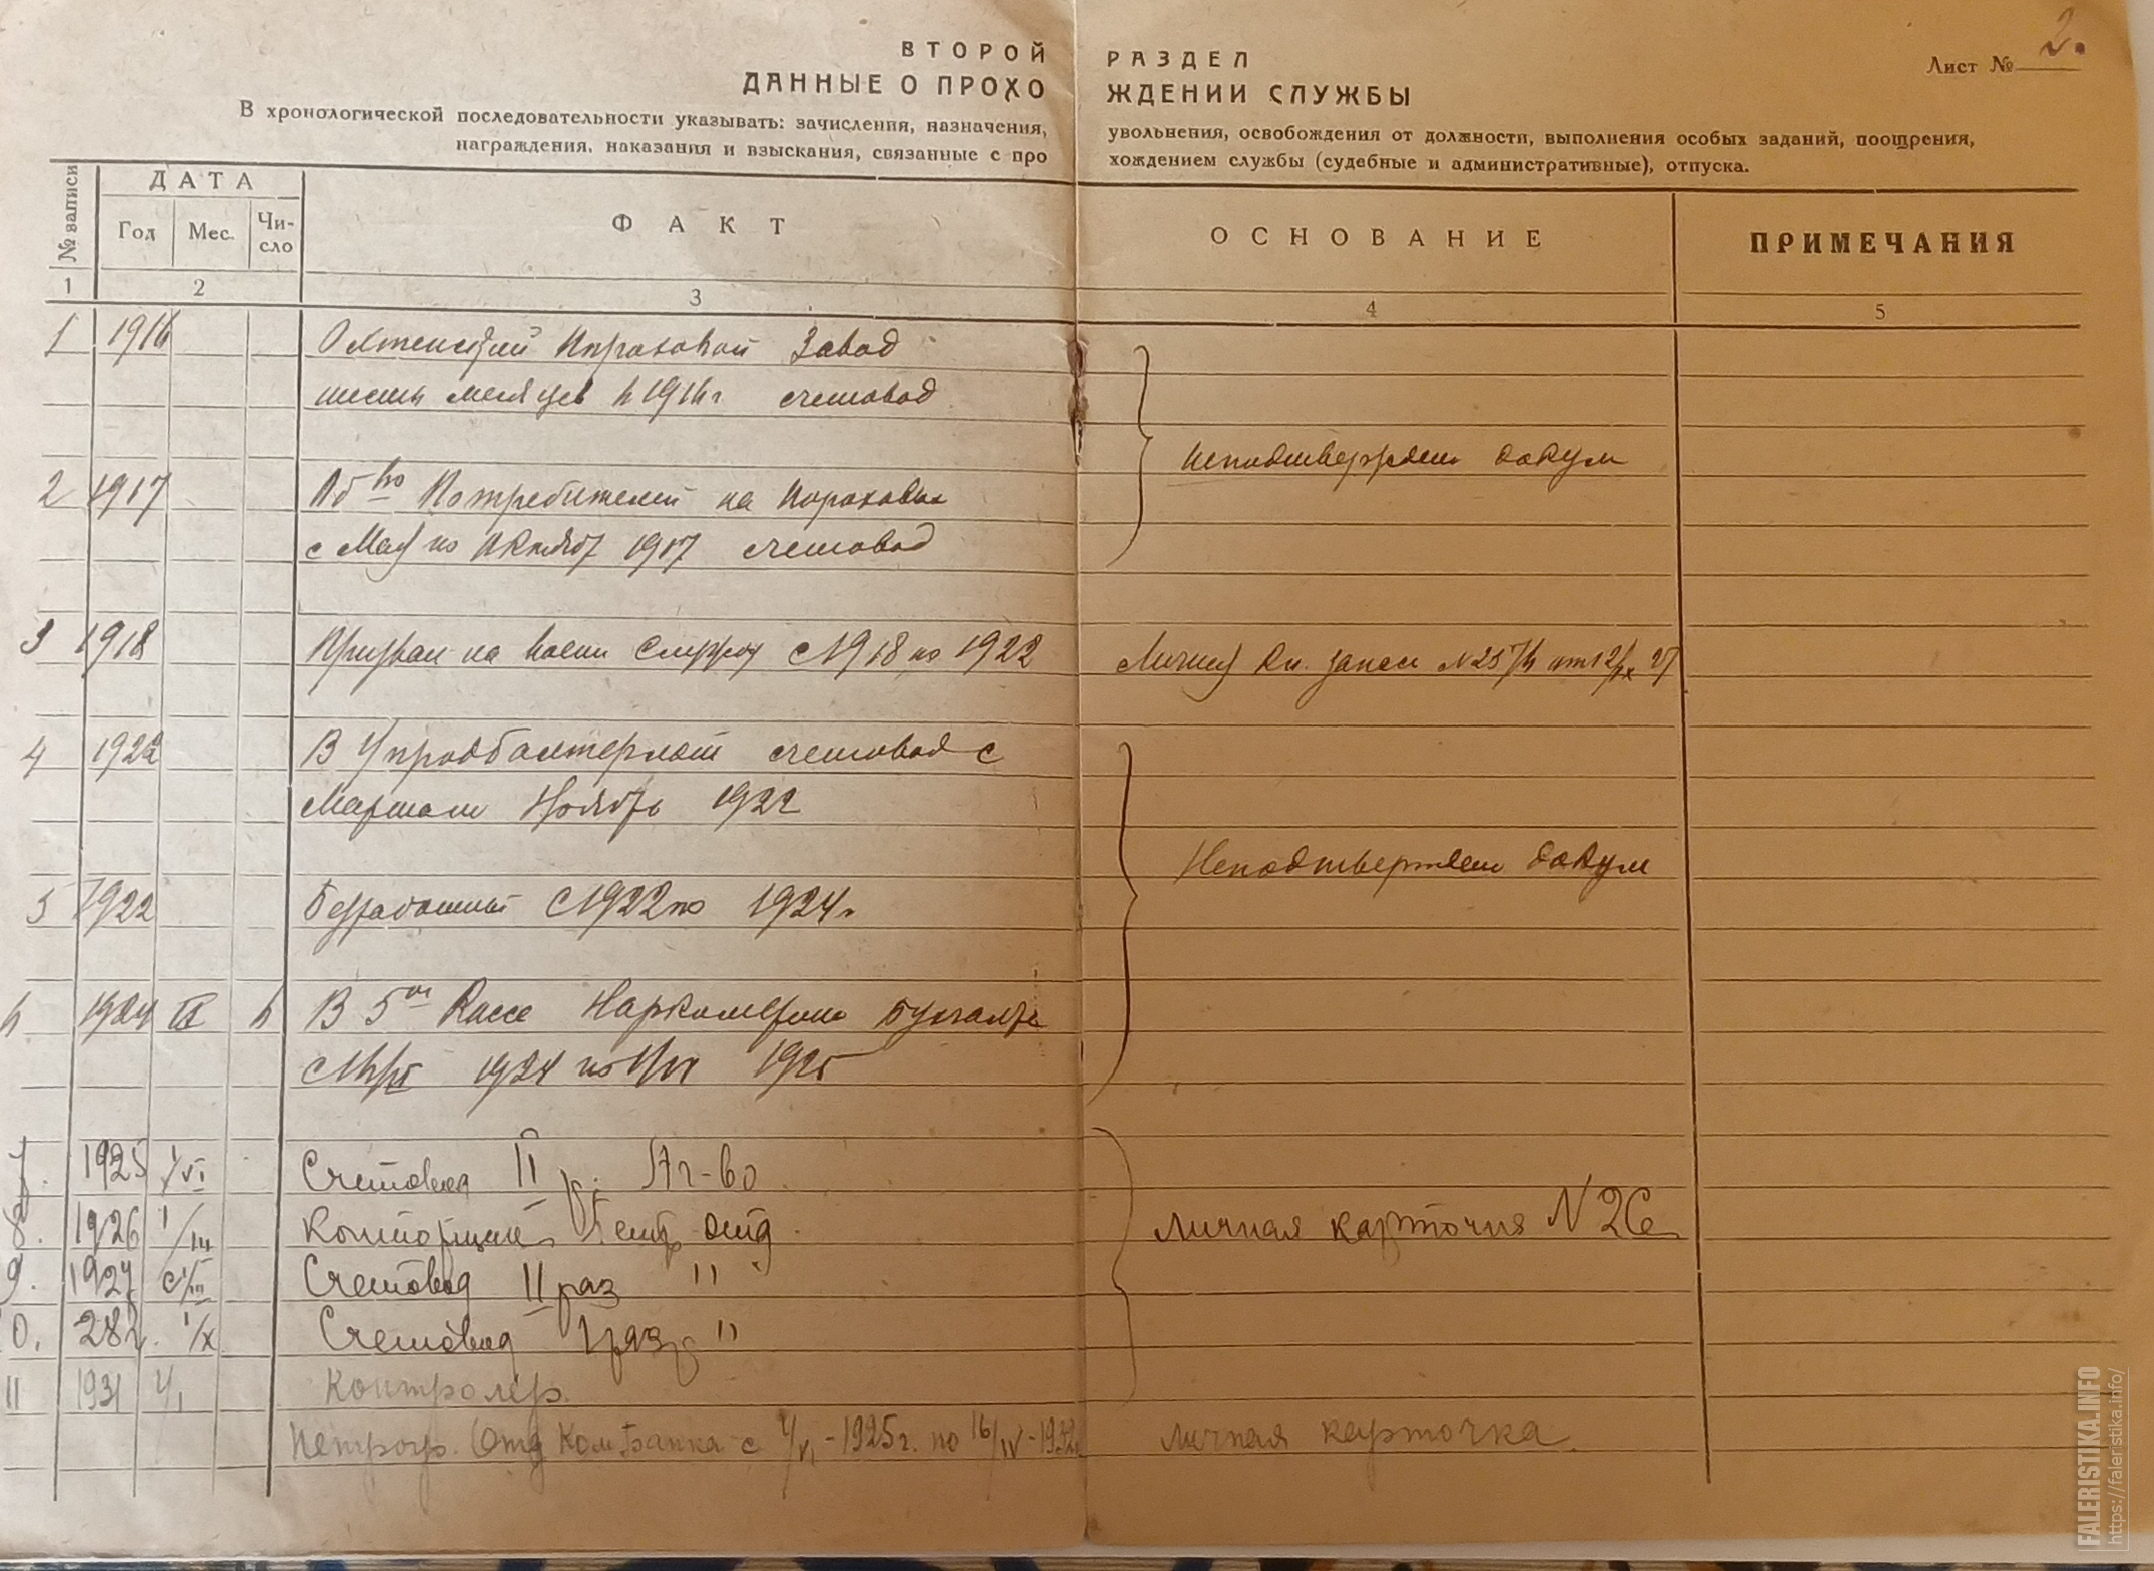 ВТОРОЙ РАЗДЕЛ
Лист № 2.
ДАННЫЕ О ПРОХОЖДЕНИИ СЛУЖБЫ
В хронологической последовательности указывать: зачисления, назначения, увольнения, освобождения от должности, выполнения особых заданий, поощрения,
награждения, наказания и взыскания, связанные с прохождением службы (судебные и административные), отпуска.
№ записи ДАТА ФАКТ ОСНОВАНИЕ ПРИМЕЧАНИЯ
Год Мес. Число
1 2 3 4 5
1 1916 Охтенский Пороховой Завод
шесть месяцев в 1916 г счетовод
неподтвержден докум
2 1917 Об во Потребителей на Пороховых
с Мая по Октябр 1917 счетовод
3 1918 Призван на воен Службу с 1918 по 1922 Личная кн. запаса
4 1922 В счетовод с
Ноябрь 1922
Неподтвержден докум
5 1922 Безработный с 1922 по 1924 г
6 1924 6 В 5ой Кассе Бухгалтер
1924 по 1925
7. 1925 1/VI Счетовод II р. Аг-во
8. 1926 1/III Конторщик Центр отд. личная карточка N
9. 1927 Счетовод II раз "
10. 28 г. 1/X Счетовод I раз "
11 1931 1/I Контролер.
Петрогр. Отд КомБанка с 1/VI-1925 г. по 16/IV-1932 личная карточка.
FALERISTIKA.INFO
https://faleristika.info/